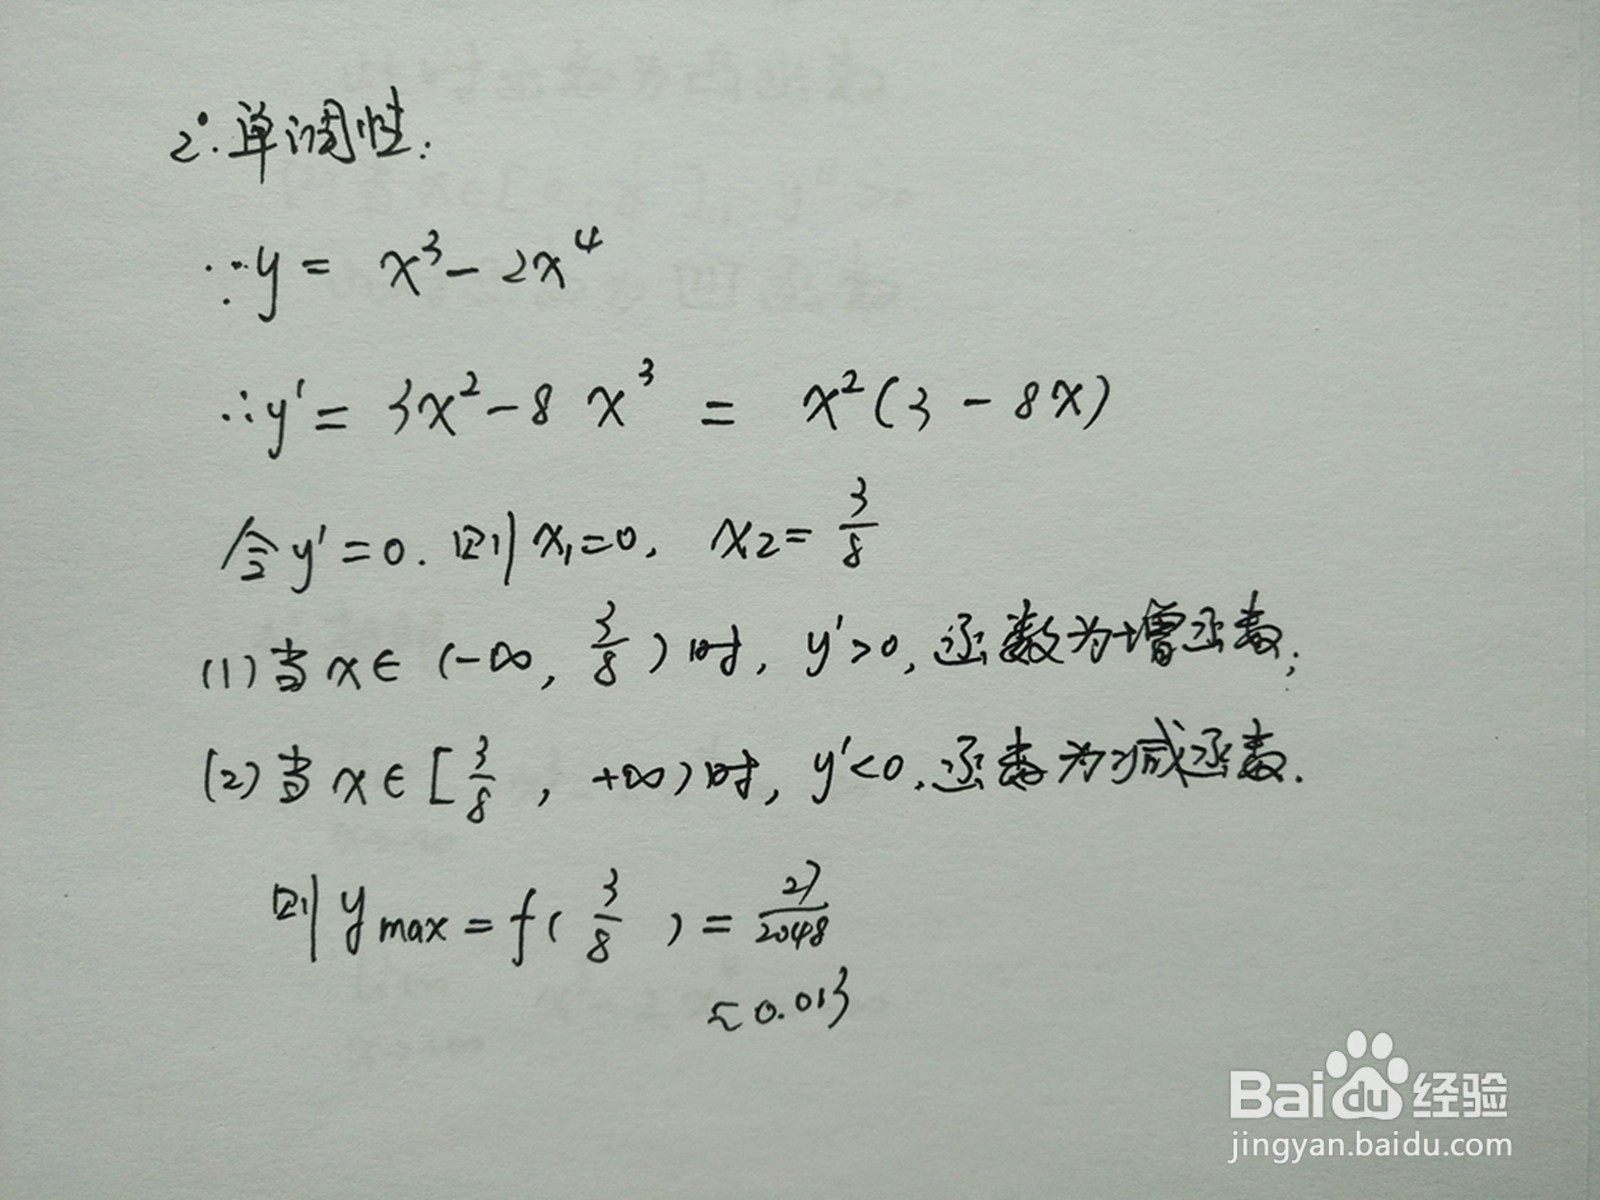 2°.单调性:
∵y = x³-2x⁴
∴y' = 3x²-8x³ = x²(3-8x)
令y'=0.则x₁=0, x₂=3/8
(1)当x∈(-∞, 3/8)时, y'>0,函数为增函数;
(2)当x∈[3/8, +∞)时, y'<0,函数为减函数.
则ymax=f(3/8)=27/2048
≈0.013
Baidu经验
jingyan.baidu.com